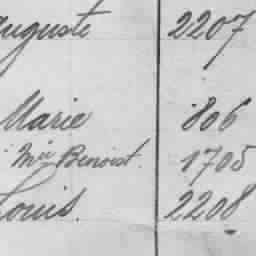 Auguste 2207
Marie 806
Mie Benoist. 1705
Louis. 2208